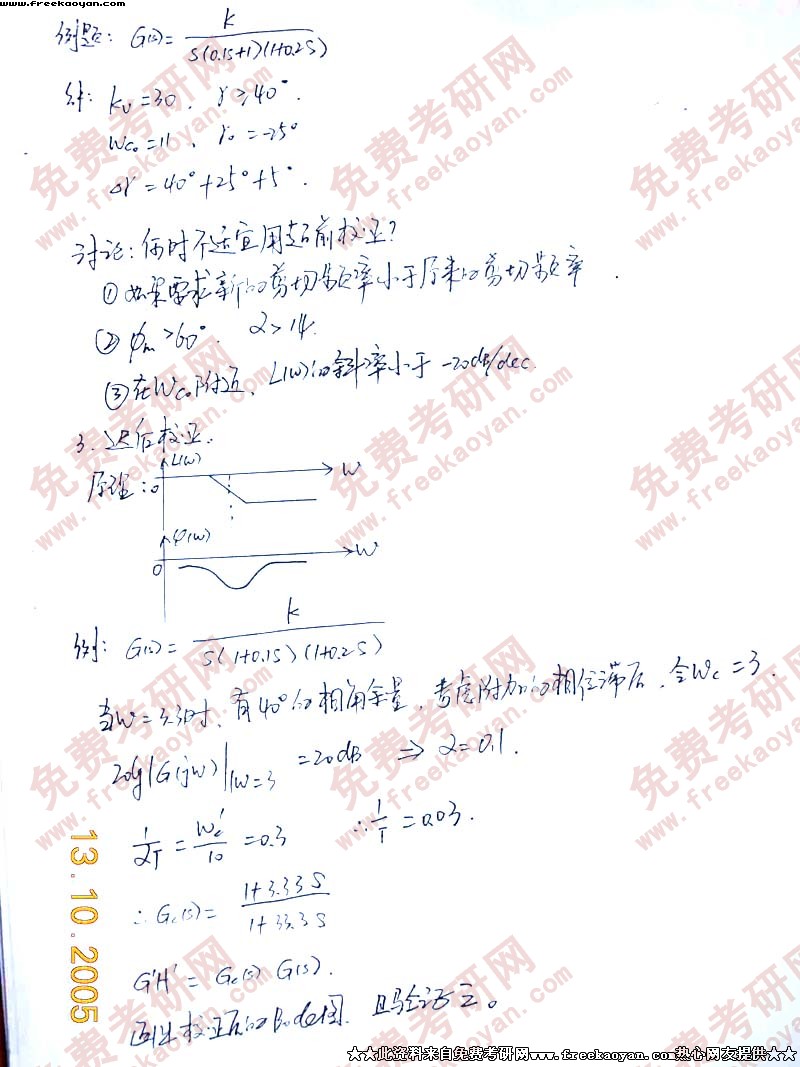 www.freekaoyan.com
例题: G(s)= K / S(0.1S+1)(1+0.2S)
Kv=30. γ≥40°.
Wc0=11, γ0=-25°
Δγ=40°+25°+5°.
讨论:何时不适宜用超前校正?
①如果要求新的剪切频率小于原来的剪切频率.
②φm>60°. α>14.
③在Wc0附近, L(W)的斜率小于-20dB/dec.
3. 迟后校正.
原理: 0 L(W) W
φ(W)
0 W
例: G(s)= K / S(1+0.1S)(1+0.2S)
当W=3.3时,有40°的相角余量,考虑附加的相位滞后,令Wc=3.
20lg|G(jW)| |W=3 =20dB ⇒ α=0.1.
1/αT = Wc'/10 =0.3 ∴1/T=0.03.
∴Gc(s)= 1+3.33S / 1+33.3S
G'H' = Gc(s) G(s).
画出校正后的Bode图. 且验证之。
13.10.2005
免费考研网
www.freekaoyan.com
★★此资料来自免费考研网www.freekaoyan.com热心网友提供★★